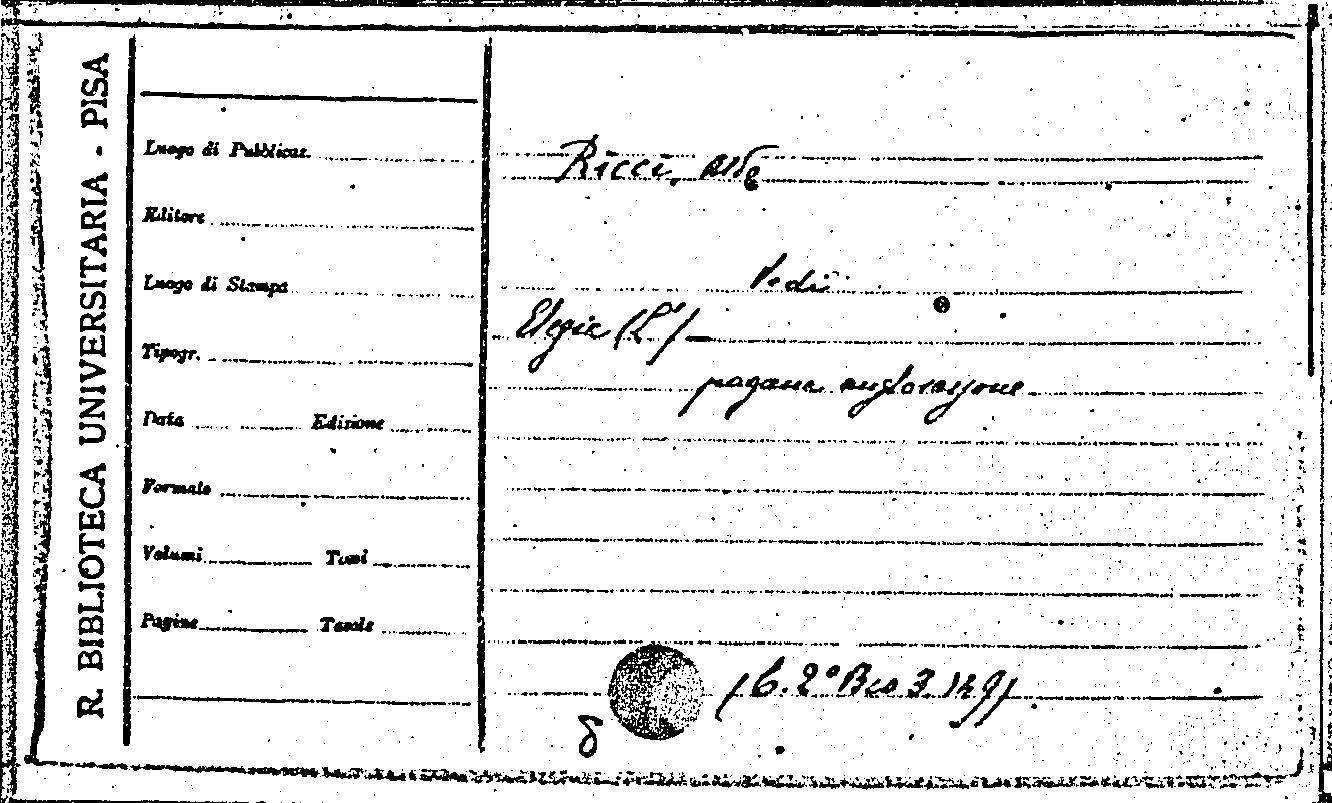 R BIBLIOTECA UNIVERSITARIA - PISA
Luogo di Pubblicaz.
Editore
Luogo di Stampa
Tipogr.
Data Edizione
Formato
Volumi Tomi
Pagine Tavole
Ricci, Aldo
Vedi
Elegia (L') —
pagana anglosassone